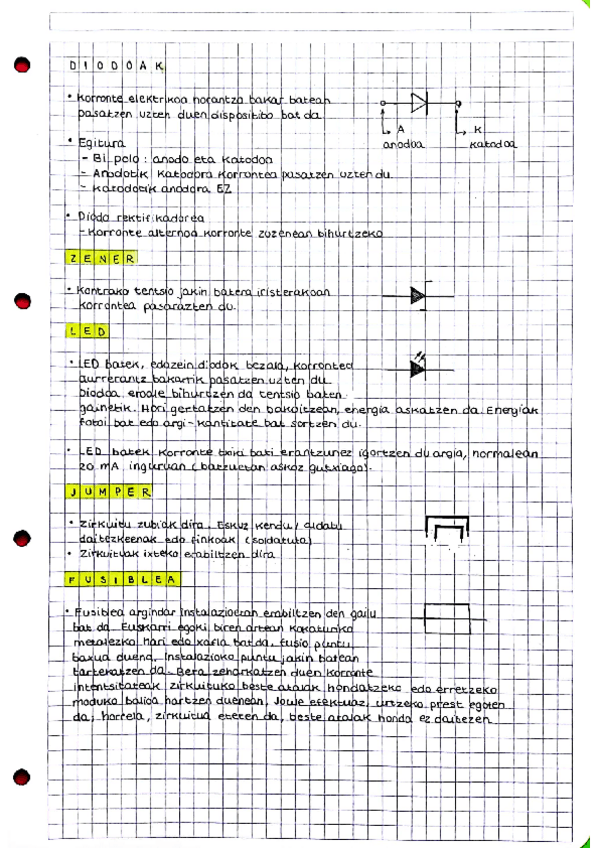 DIODOAK
• Korronte elektrikoa norantza bakar batean
pasatzen uzten duen dispositibo bat da
A
K
anodoa
katodoa
• Egitura
- Bi polo : anodo eta katodoa
- Anodotik katodora korrontea pasatzen uzten du.
- Katodotik anodora EZ
• Diodo rektifikadorea
- Korronte alternoa korronte zuzenean bihurtzeko
ZENER
• Kontrako tentsio jakin batera iristerakoan
korrontea pasarazten du.
LED
• LED batek, edozein diodok bezala, korrontea
aurrerantz bakarrik pasatzen uzten du.
Diodoa eroale bihurtzen da tentsio baten
gainetik. Hori gertatzen den bakoitzean, energia askatzen da. Energiak
fotoi bat edo argi-kantitate bat sortzen du.
• LED batek korronte txiki bati erantzunez igortzen du argia, normalean
20 mA inguruan (batzuetan askoz gutxiago).
JUMPER
• Zirkuitu zubiak dira. Eskuz kendu / aldatu
daitezkeenak edo finkoak (soldatuta)
• Zirkuituak ixteko erabiltzen dira
FUSIBLEA
• Fusiblea argindar instalazioetan erabiltzen den gailu
bat da. Euskarri egoki biren artean kokaturiko
metalezko hari edo xafla bat da, fusio puntu
baxua duena. Instalazioko puntu jakin batean
tartekatzen da. Bera zeharkatzen duen korronte
intentsitateak zirkuituko beste atalak hondatzeko edo erretzeko
moduko balioa hartzen duenean, Joule efektuaz, urtzeko prest egoten
da; horrela, zirkuitua eteten da, beste atalak honda ez daitezen